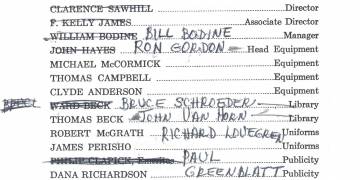 CLARENCE SAWHILL Director
F. KELLY JAMES Associate Director
WILLIAM BODINE BILL BODINE Manager
JOHN HAYES RON GORDON Head Equipment
MICHAEL McCORMICK Equipment
THOMAS CAMPBELL Equipment
CLYDE ANDERSON Equipment
WARD BECK BRUCE SCHROEDER Library
THOMAS BECK JOHN VAN HORN Library
ROBERT McGRATH RICHARD LOVEGREN Uniforms
JAMES PERISHO Uniforms
PHILIP CLAPICK, PAUL Publicity
DANA RICHARDSON GREENBLATT Publicity